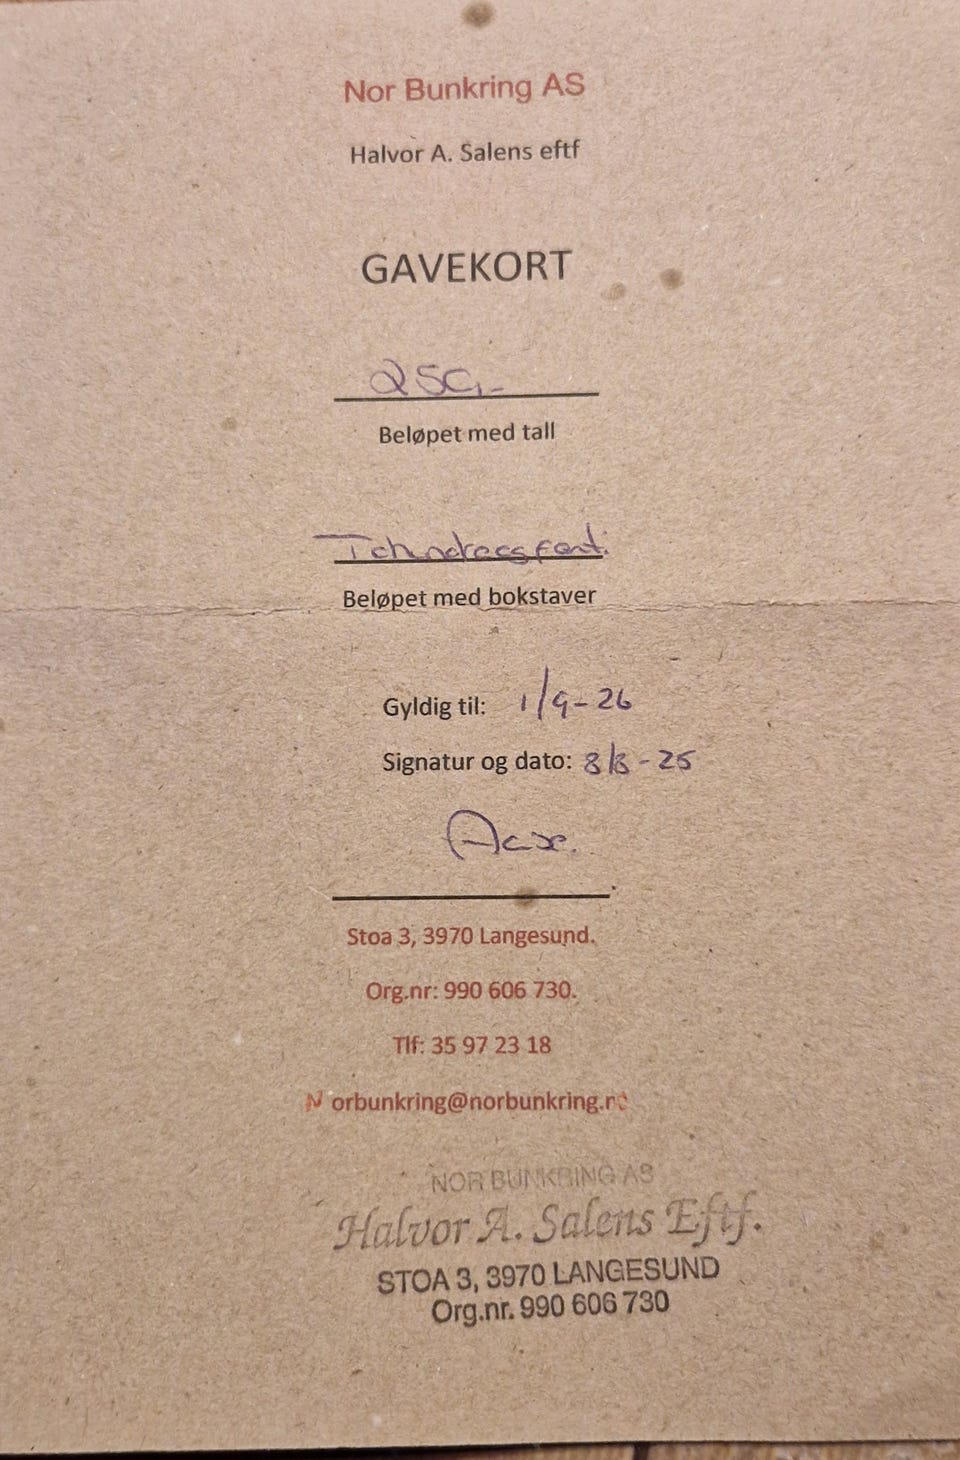 Nor Bunkring AS
Halvor A. Salens eftf
GAVEKORT
250,-
Beløpet med tall
Beløpet med bokstaver
Gyldig til: 1/9-26
Signatur og dato: 8/8-25
Stoa 3, 3970 Langesund.
Org.nr: 990 606 730.
Tlf: 35 97 23 18
Norbunkring@norbunkring.no
NOR BUNKRING AS
Halvor A. Salens Eftf.
STOA 3, 3970 LANGESUND
Org.nr. 990 606 730